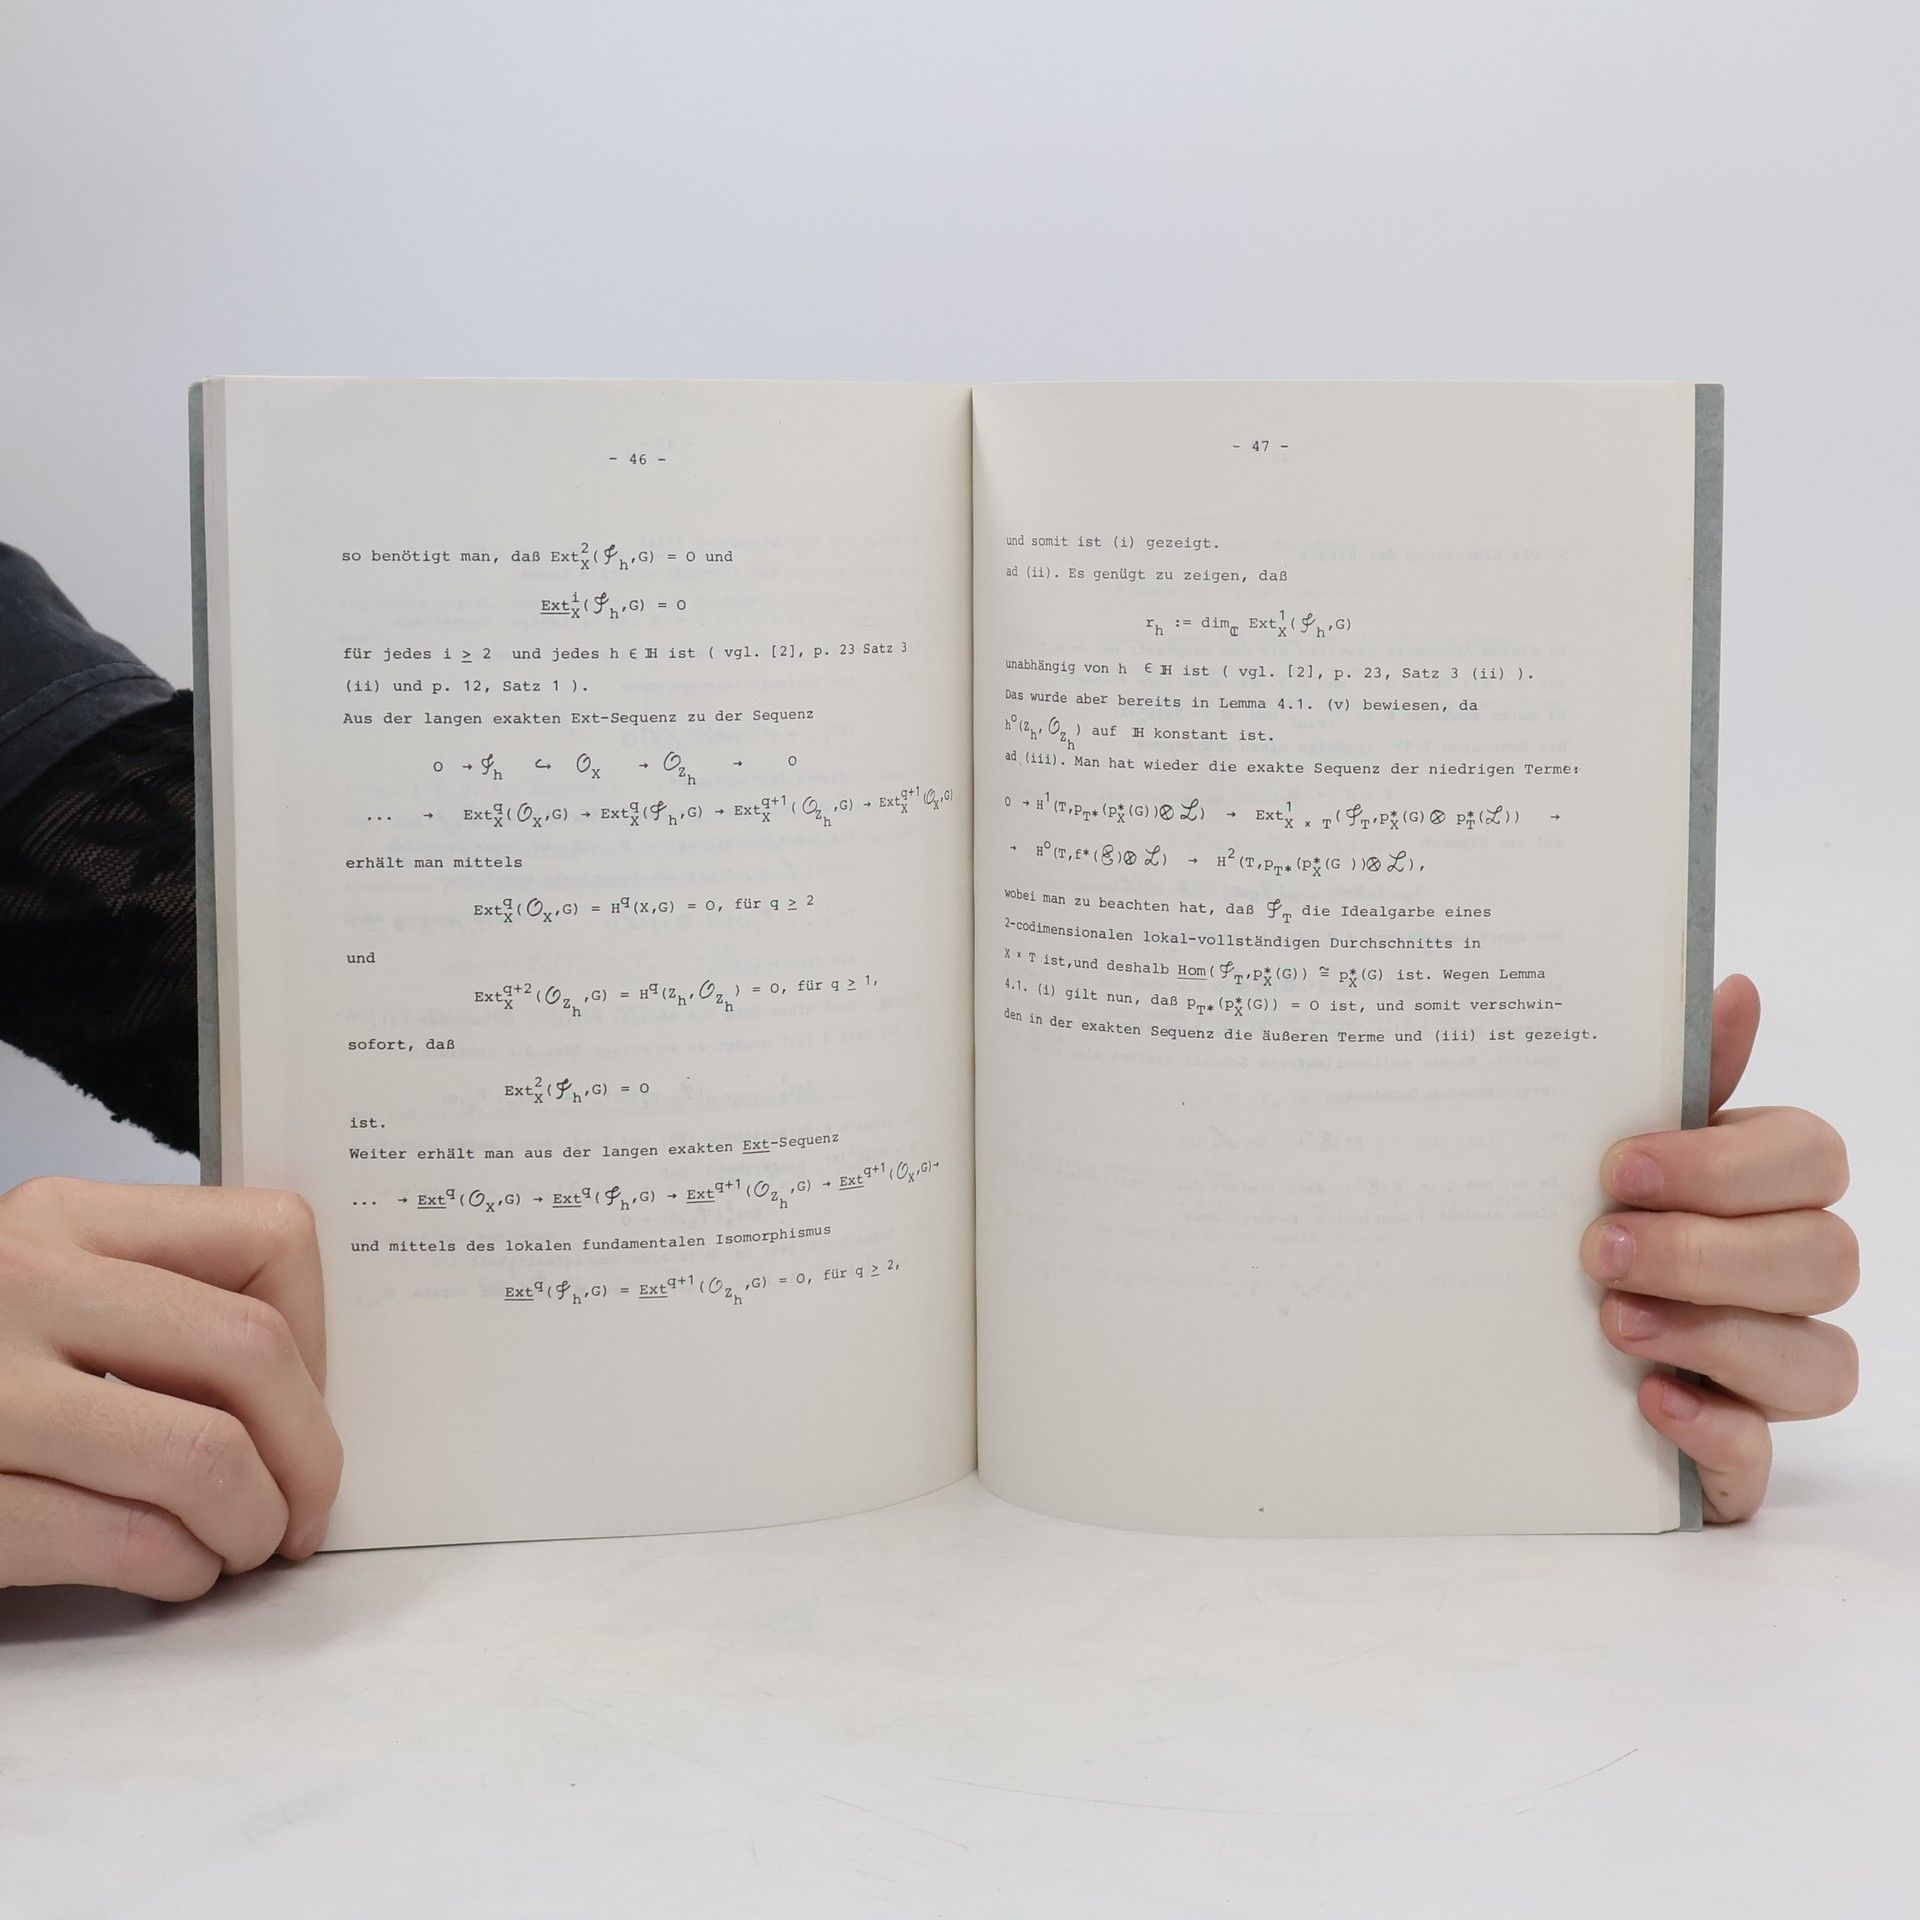 - 46 -
so benötigt man, daß Ext²_X(𝒥_h,G) = O und
Ext^i_X(𝒥_h,G) = O
für jedes i ≥ 2 und jedes h ∈ ℍ ist ( vgl. [2], p. 23 Satz 3
(ii) und p. 12, Satz 1 ).
Aus der langen exakten Ext-Sequenz zu der Sequenz
O → 𝒥_h ↪ 𝒪_X → 𝒪_{Z_h} → O
... → Ext^q_X(𝒪_X,G) → Ext^q_X(𝒥_h,G) → Ext^{q+1}_X(𝒪_{Z_h},G) → Ext^{q+1}_X(𝒪_X,G)
erhält man mittels
Ext^q_X(𝒪_X,G) = H^q(X,G) = O, für q ≥ 2
und
Ext^{q+2}_X(𝒪_{Z_h},G) = H^q(Z_h,𝒪_{Z_h}) = O, für q ≥ 1,
sofort, daß
Ext²_X(𝒥_h,G) = O
ist.
Weiter erhält man aus der langen exakten Ext-Sequenz
... → Ext^q(𝒪_X,G) → Ext^q(𝒥_h,G) → Ext^{q+1}(𝒪_{Z_h},G) → Ext^{q+1}(𝒪_X,G)→
und mittels des lokalen fundamentalen Isomorphismus
Ext^q(𝒥_h,G) = Ext^{q+1}(𝒪_{Z_h},G) = O, für q ≥ 2,
- 47 -
und somit ist (i) gezeigt.
ad (ii). Es genügt zu zeigen, daß
r_h := dim_ℂ Ext¹_X(𝒥_h,G)
unabhängig von h ∈ ℍ ist ( vgl. [2], p. 23, Satz 3 (ii) ).
Das wurde aber bereits in Lemma 4.1. (v) bewiesen, da
h^o(Z_h,𝒪_{Z_h}) auf ℍ konstant ist.
ad (iii). Man hat wieder die exakte Sequenz der niedrigen Terme:
O → H¹(T,p_{T*}(p*_X(G))⊗ℒ) → Ext¹_{X × T}(𝒥_T,p*_X(G)⊗ p*_T(ℒ)) →
→ H^o(T,f*(ℰ)⊗ ℒ) → H²(T,p_{T*}(p*_X(G ))⊗ ℒ),
wobei man zu beachten hat, daß 𝒥_T die Idealgarbe eines
2-codimensionalen lokal-vollständigen Durchschnitts in
X × T ist,und deshalb Hom(𝒥_T,p*_X(G)) ≅ p*_X(G) ist. Wegen Lemma
4.1. (i) gilt nun, daß p_{T*}(p*_X(G)) = O ist, und somit verschwin-
den in der exakten Sequenz die äußeren Terme und (iii) ist gezeigt.